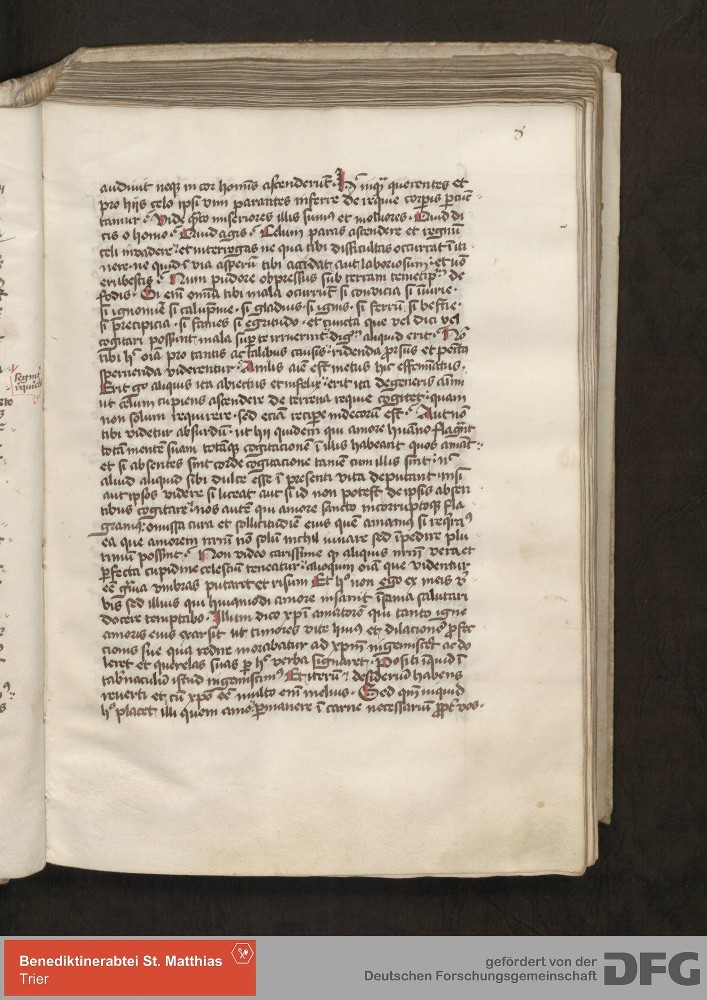 8
audiuit neqz in cor hominis ascenderūt. Hec inqꝫ querentes et
pro hijs celo ipsi vim parantes inferre de
tamur. Vide quanto miseriores illis sumꝰ et molliores. Quid di
cis o homo. Quid agis. Celum paras ascendere et regnū
celi inuadere et interrogas ne qua tibi difficultas occurrat ī iti
nere. ne quid ī via asperū tibi accidat aut laboriosum. et nō
erubescis. Num pudore obpressus sub terram temetipm̄ de
fodis. Si em̄ omīa tibi mala occurrūt si conuicia si iniurie.
si ignomīie si calūpnie. si gladius. si ignis. si ferrū si bestie.
si precipicia. si fames si egritudo. et cuncta que vel dici vel
cogitari possunt mala suꝑ te irruerint. aliquid erit. Nō
tibi hͦ oīa pro tantis ac talibus causis ridenda prorsus et penitꝰ
spernenda viderentur. Amlis est metus hic effemīatus.
Erit go aliquis ita abiectus et infelix. erit ita degeneris aīmi
ut celum cupiens ascendere de terrena requie cogitet. quam
non solum requirere. sed eciā recipe indecorū est. Aut nō
tibi videtur absurdū. ut hij quidem qui amore hūano flagrāt
totā mentē suam totāqꝫ cogitacionē ī illis habeant quos amāt.
et si absentes sint corde cogitacione tamē cum illis sint. nͨ
aliud aliquid sibi dulce esse ī presenti vita deputant. nisi
aut ipsos videre si liceat aut si id non potest de ipsis absen
tibus cogitare. nos autē qui amore sancto incorruptoqꝫ fla
gramꝰ. omissa cura et sollicitudīe eius quē amamꝰ si reqͥramꝰ
ea que amorem nrm̄ nō solū nichil iuuare sed īpedire plu
rimū possint. Non video carissime ꝙ aliquis nrm̄ vera et
ꝑfecta cupidine celestiū teneatur. alioquin oīa que videntur
eē vmbras putaret et risum Et hͦ non ego ex meis v̄
bis sed illius qui huiusmodi amore insanit īsania salutari
docere temptabo. Illum dico xpī amatorē qui tanto igne
amoris eius exarsit ut timores vite huiꝰ et dilacionē ꝓfec
cionis sue qua redire morabatur ad xpm̄ ingemisceret ac do
leret et querelas suas ꝑ hͦ verba signaret. Positi inquid ī
tabnaculū istud ingemiscimꝰ. Et iterū desideriū habens
reuerti et cū xpō eē multo em̄ melius. Sed qm̄ inquid
hͦ placet illi quem amo. ꝑmanere ī carne necessariū ꝓpt vos.
segniꝰ
Benediktinerabtei St. Matthias
Trier
gefördert von der
Deutschen Forschungsgemeinschaft
DFG